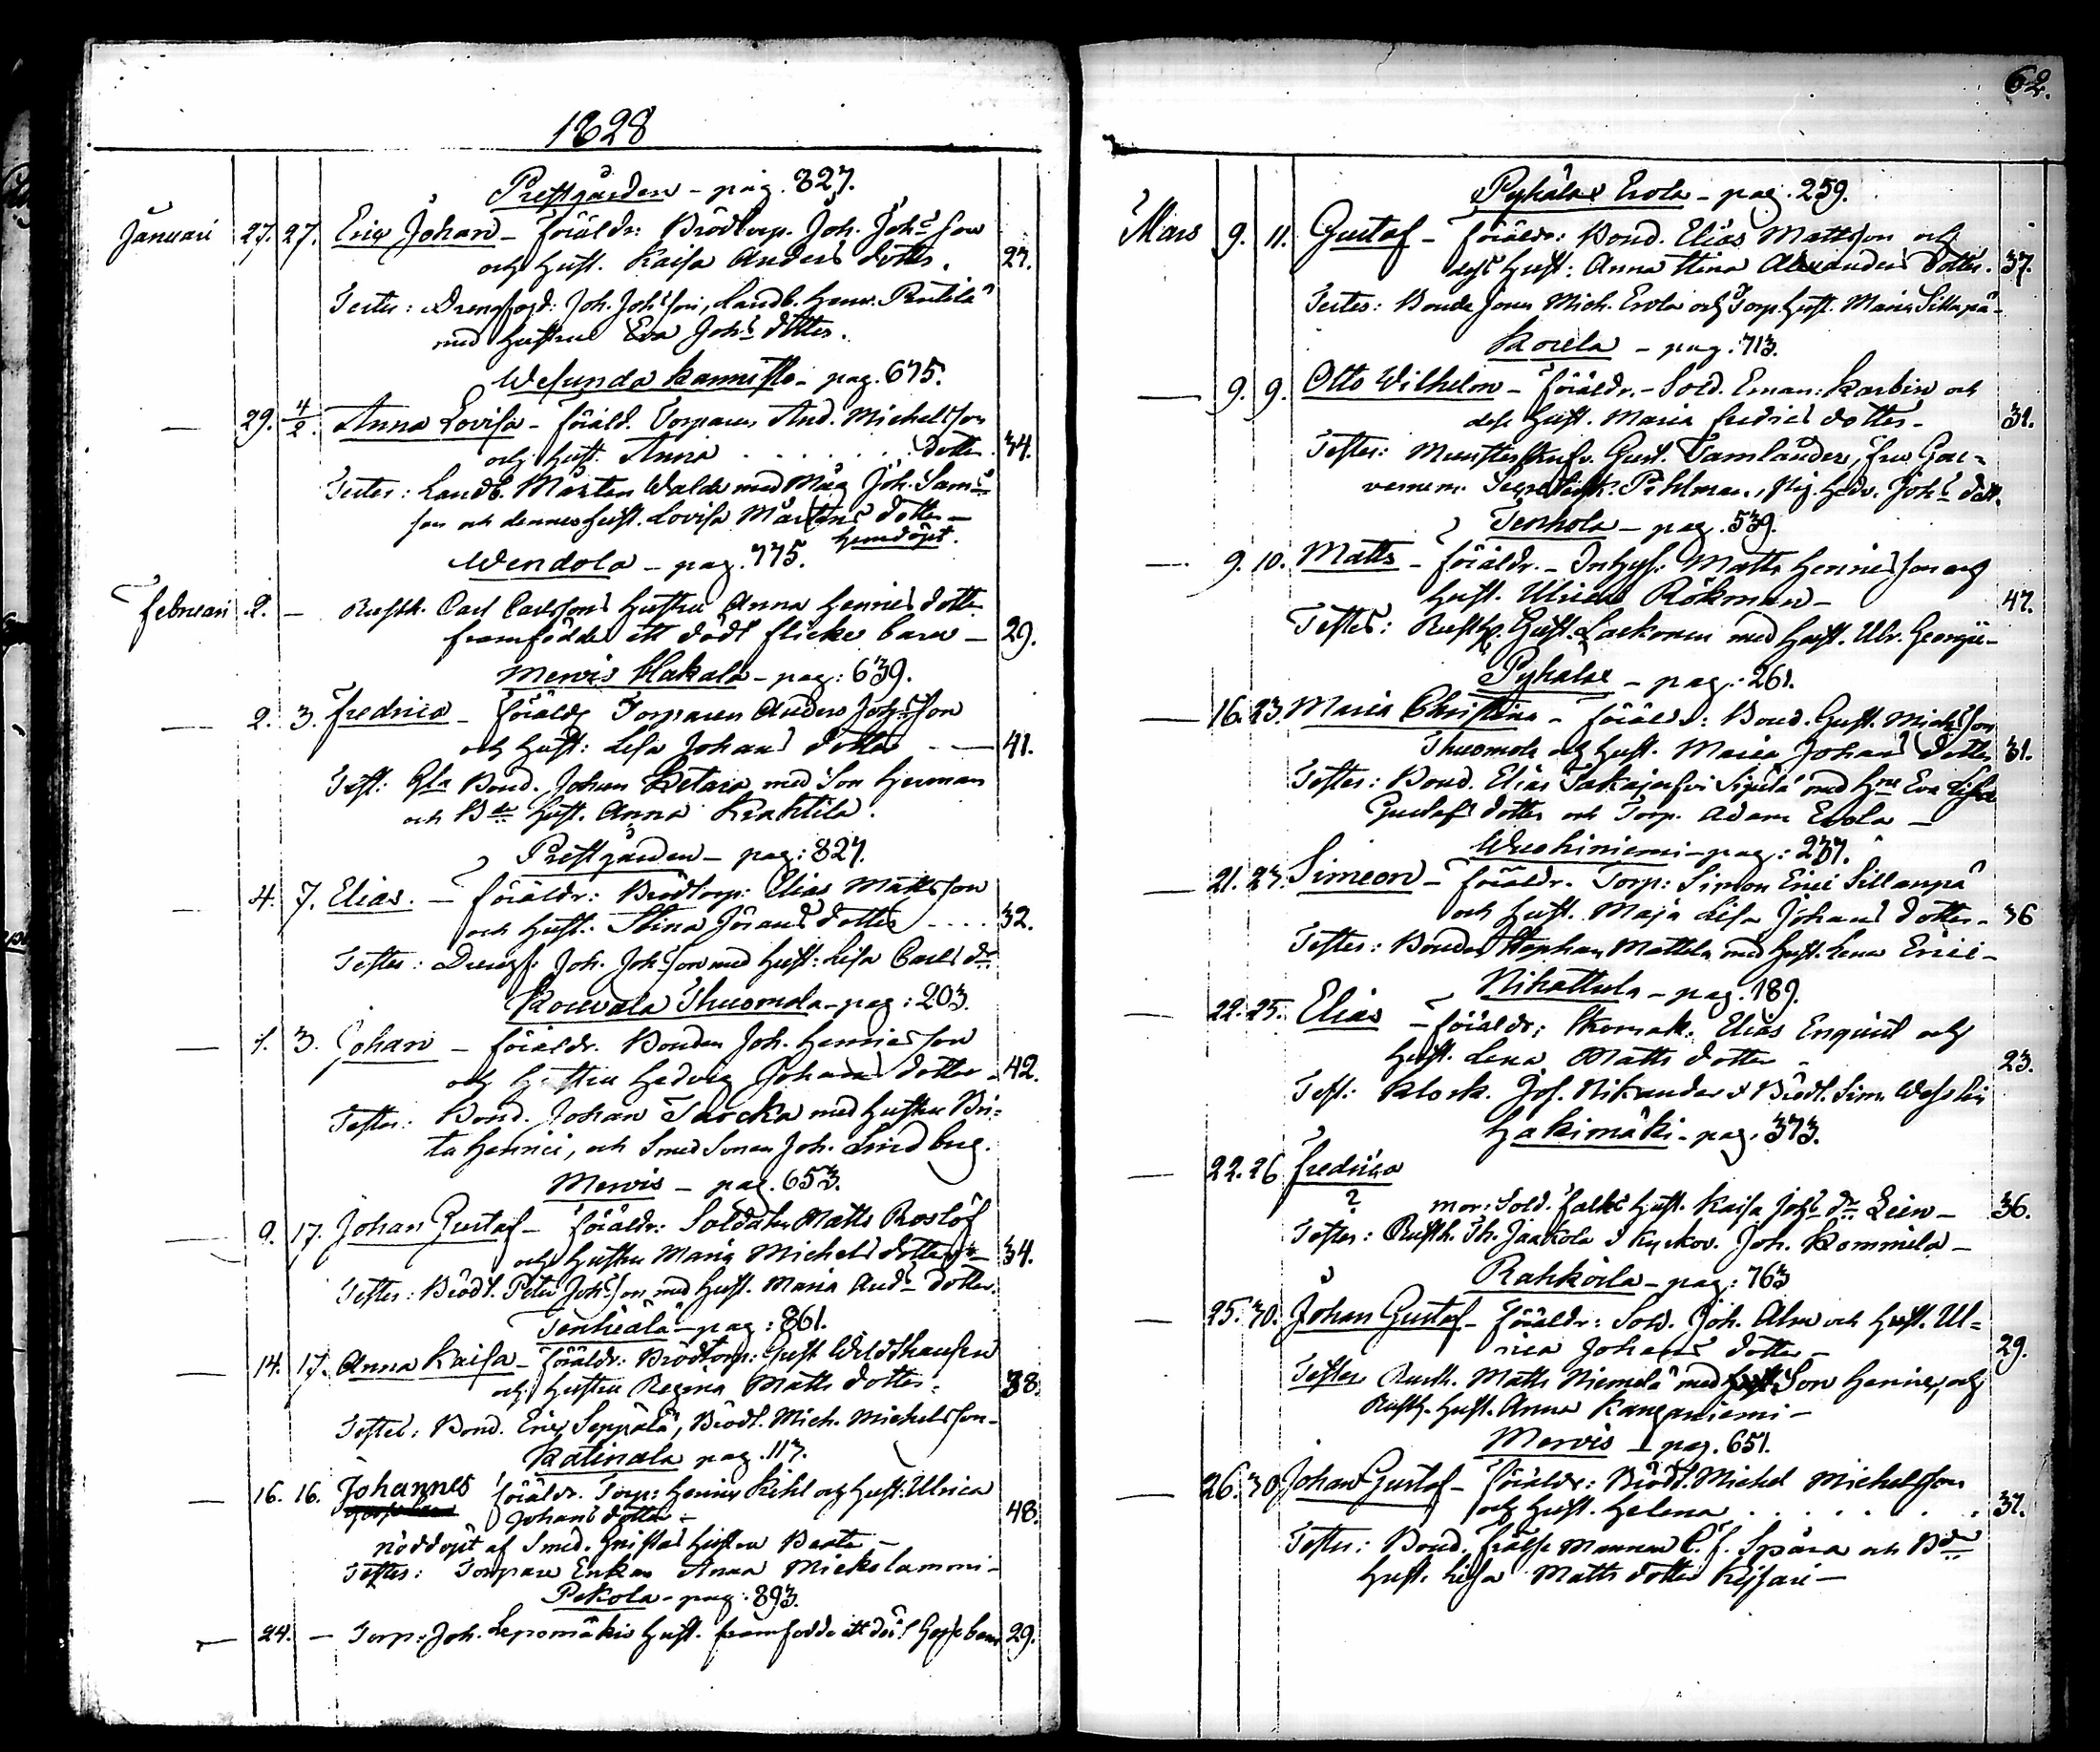 1828
Prestgården - pag. 827.
Januari 27. 27. Eric Johan - föräldr: Brödtorp. Joh. Johsson
och hust. Kaisa Anders dotter. 27.
Testes: Drengfogd: Joh. Johsson, Landb. Henr. Penttilä
med hustru Eva Johs dotter.
Wesunda Kannisto - pag. 675.
— 29. 4/2. Anna Lovisa - föräld. Torparen And. Michelsson
och hust. Anna . . . . . . dotter. 34.
Testes: Landb. Mårten Walde med Måg Joh. Sams
son och dennes hust. Lovisa Mårtens dotter -
hemdöpt.
Wendola - pag. 775.
Februari 2. - Rusth. Carl Carlssons hustru Anna Henrics dotter
framfödde ett dödt flicke barn - 29.
Merwis Hakala - pag: 639.
— 2. 3. Fredrica - föräldr Torparen Anders Johsson
och hust: Lisa Johans dotter - — 41.
Test: Gla Bond. Johan Ketara med Son Herman
och Bde hust. Anna Krahtila.
Prestgården - pag: 827.
— 4. 7. Elias. - föräldr: Brödtorp: Elias Mattsson
och hust. Stina Jörans dotter .... 32.
Testes: Drengf. Joh. Johsson med hust: Lisa Carls dr
Kouvala Thuomola - pag: 203.
— 1. 3. Johan - föräldr. Bonden Joh. Henricsson
och hustru Hedvig Johans dotter - 42.
Testes: Bond. Johan Tröcka med hustru Bri=
ta Henrici, och Smed Sonen Joh. Lindberg.
Merwis - pag. 653.
— 9. 17. Johan Gustaf - föräldr: Soldaten Matts Roslöf
och hustru Maria Michels dotter - 34.
Testes: Brödt. Peter Johsson med hust. Maria Ands dotter.
Tenhiälä - pag: 861.
— 14. 17. Anna Kaisa - föräldr: Brödtorp: Gust Wildthausen
och hustru Regina Matts dotter. 38.
Testes: Bond. Eric Seppälä, Brödt. Mich. Michelsson -
Katinala pag. 117.
— 16. 16. Johannes föräldr. Torp: Henric Kihl och hust. Ulrica
Johans dotter - 48.
nöddöpt af Smed. Gristas hustru Beata -
Testes: Torpare Enkan Anna Mickolammi -
Pekola - pag: 893.
— 24. - Torp: Joh. Lepomäkis hust. framfödde ett dödt Gosse barn 29.
62.
Pyhälax Erola - pag. 259.
Mars 9. 11. Gustaf - föräldr: Bond. Elias Mattsson och
dess hust: Anna Stina Alexanders dotter. 37.
Testes: Bonde Jonas Mich. Erola och Torp. hust. Maria Sillapä -
Kouela - pag. 713.
— 9. 9. Otto Wilhelm - föräldr. - Sold. Eman: Karbin och
dess hust. Maria Fredrics dotter - 31.
Testes: Munsterskrifv. Gust. Tamlander, fru Gou=
vernem. Secretersk. Pihlman, Pig. Hedv. Johs dott.
Tenhola - pag. 539.
— 9. 10. Matts - föräldr. - Inhys: Matts Henricsson och
hust. Ulrica Rökman - 47.
Testes: Rusth. Gust. Laekonen med hust. Ulr. Georgii -
Pyhälax - pag: 261.
— 16. 23. Maria Christina - föräldr: Bond. Gust. Michsson
Thuomola och hust. Maria Johans dotter 31.
Testes: Bond. Elias Takajärfvi Sipilä med hru Eva Lisa
Gustafs dotter och Torp. Adam Erola -
Wuohiniemi - pag: 237.
— 21. 23. Simeon - föräldr. Torp: Simon Erici Sillanpä
och hust. Maja Lisa Johans dotter - 36
Testes: Bonden Stephan Mattila med hust. Lena Erici -
Nihattula - pag. 189.
— 22. 25. Elias - föräldr; Skomak. Elias Enqvist och
hust. Lena Matts dotter - 23.
Test: Klock. Jos. Nikander & Brödt. Sim. Wesslin
Hakimäki - pag. 373.
— 22. 26 Fredrica
? mor: Sold. Falks hust. Kaisa Johs dr Leino - 36.
Testes: Rusth. Th. Jaakola & Kyrkov. Joh. Kommila -
Rahkoila - pag: 763
— 25. 30. Johan Gustaf - föräldr: Sold. Joh. Alm och hust. Ul=
rica Johans dotter - 29.
Testes Rusth. Matts Niemelä med Son Henric, och
Rusth. hust. Anna Kanganiemi -
Merwis - pag. 651.
— 26. 30 Johan Gustaf - föräldr: Brödt. Michel Michelsson
och hust. Helena . . . . . . . 37.
Testes: Bond. frälse mannen C. J. Spåra och Bde
hust. Lisa Matts dotter Keisari -